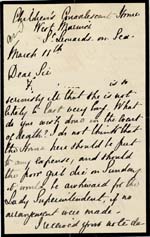 Children's Convalescent Home
West
St Leonards on Sea
March 11th
Dear Sir
is so
seriously ill that she is not
likely to last very long. What
do you wish done in the event
of death? I do not think that
the Home here should be put
to any expense, and should
the poor girl die on Sunday
it would be awkward for the
Lady Superintendent, if no
arrangement were made.
I received your note